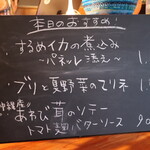 本日のおすすめ
・するめイカの煮込み
～パネッレ添え～
1.
・ブリと夏野菜のマリネ
1.
沖縄産
あわび茸のソテー
トマト麹バターソース 90